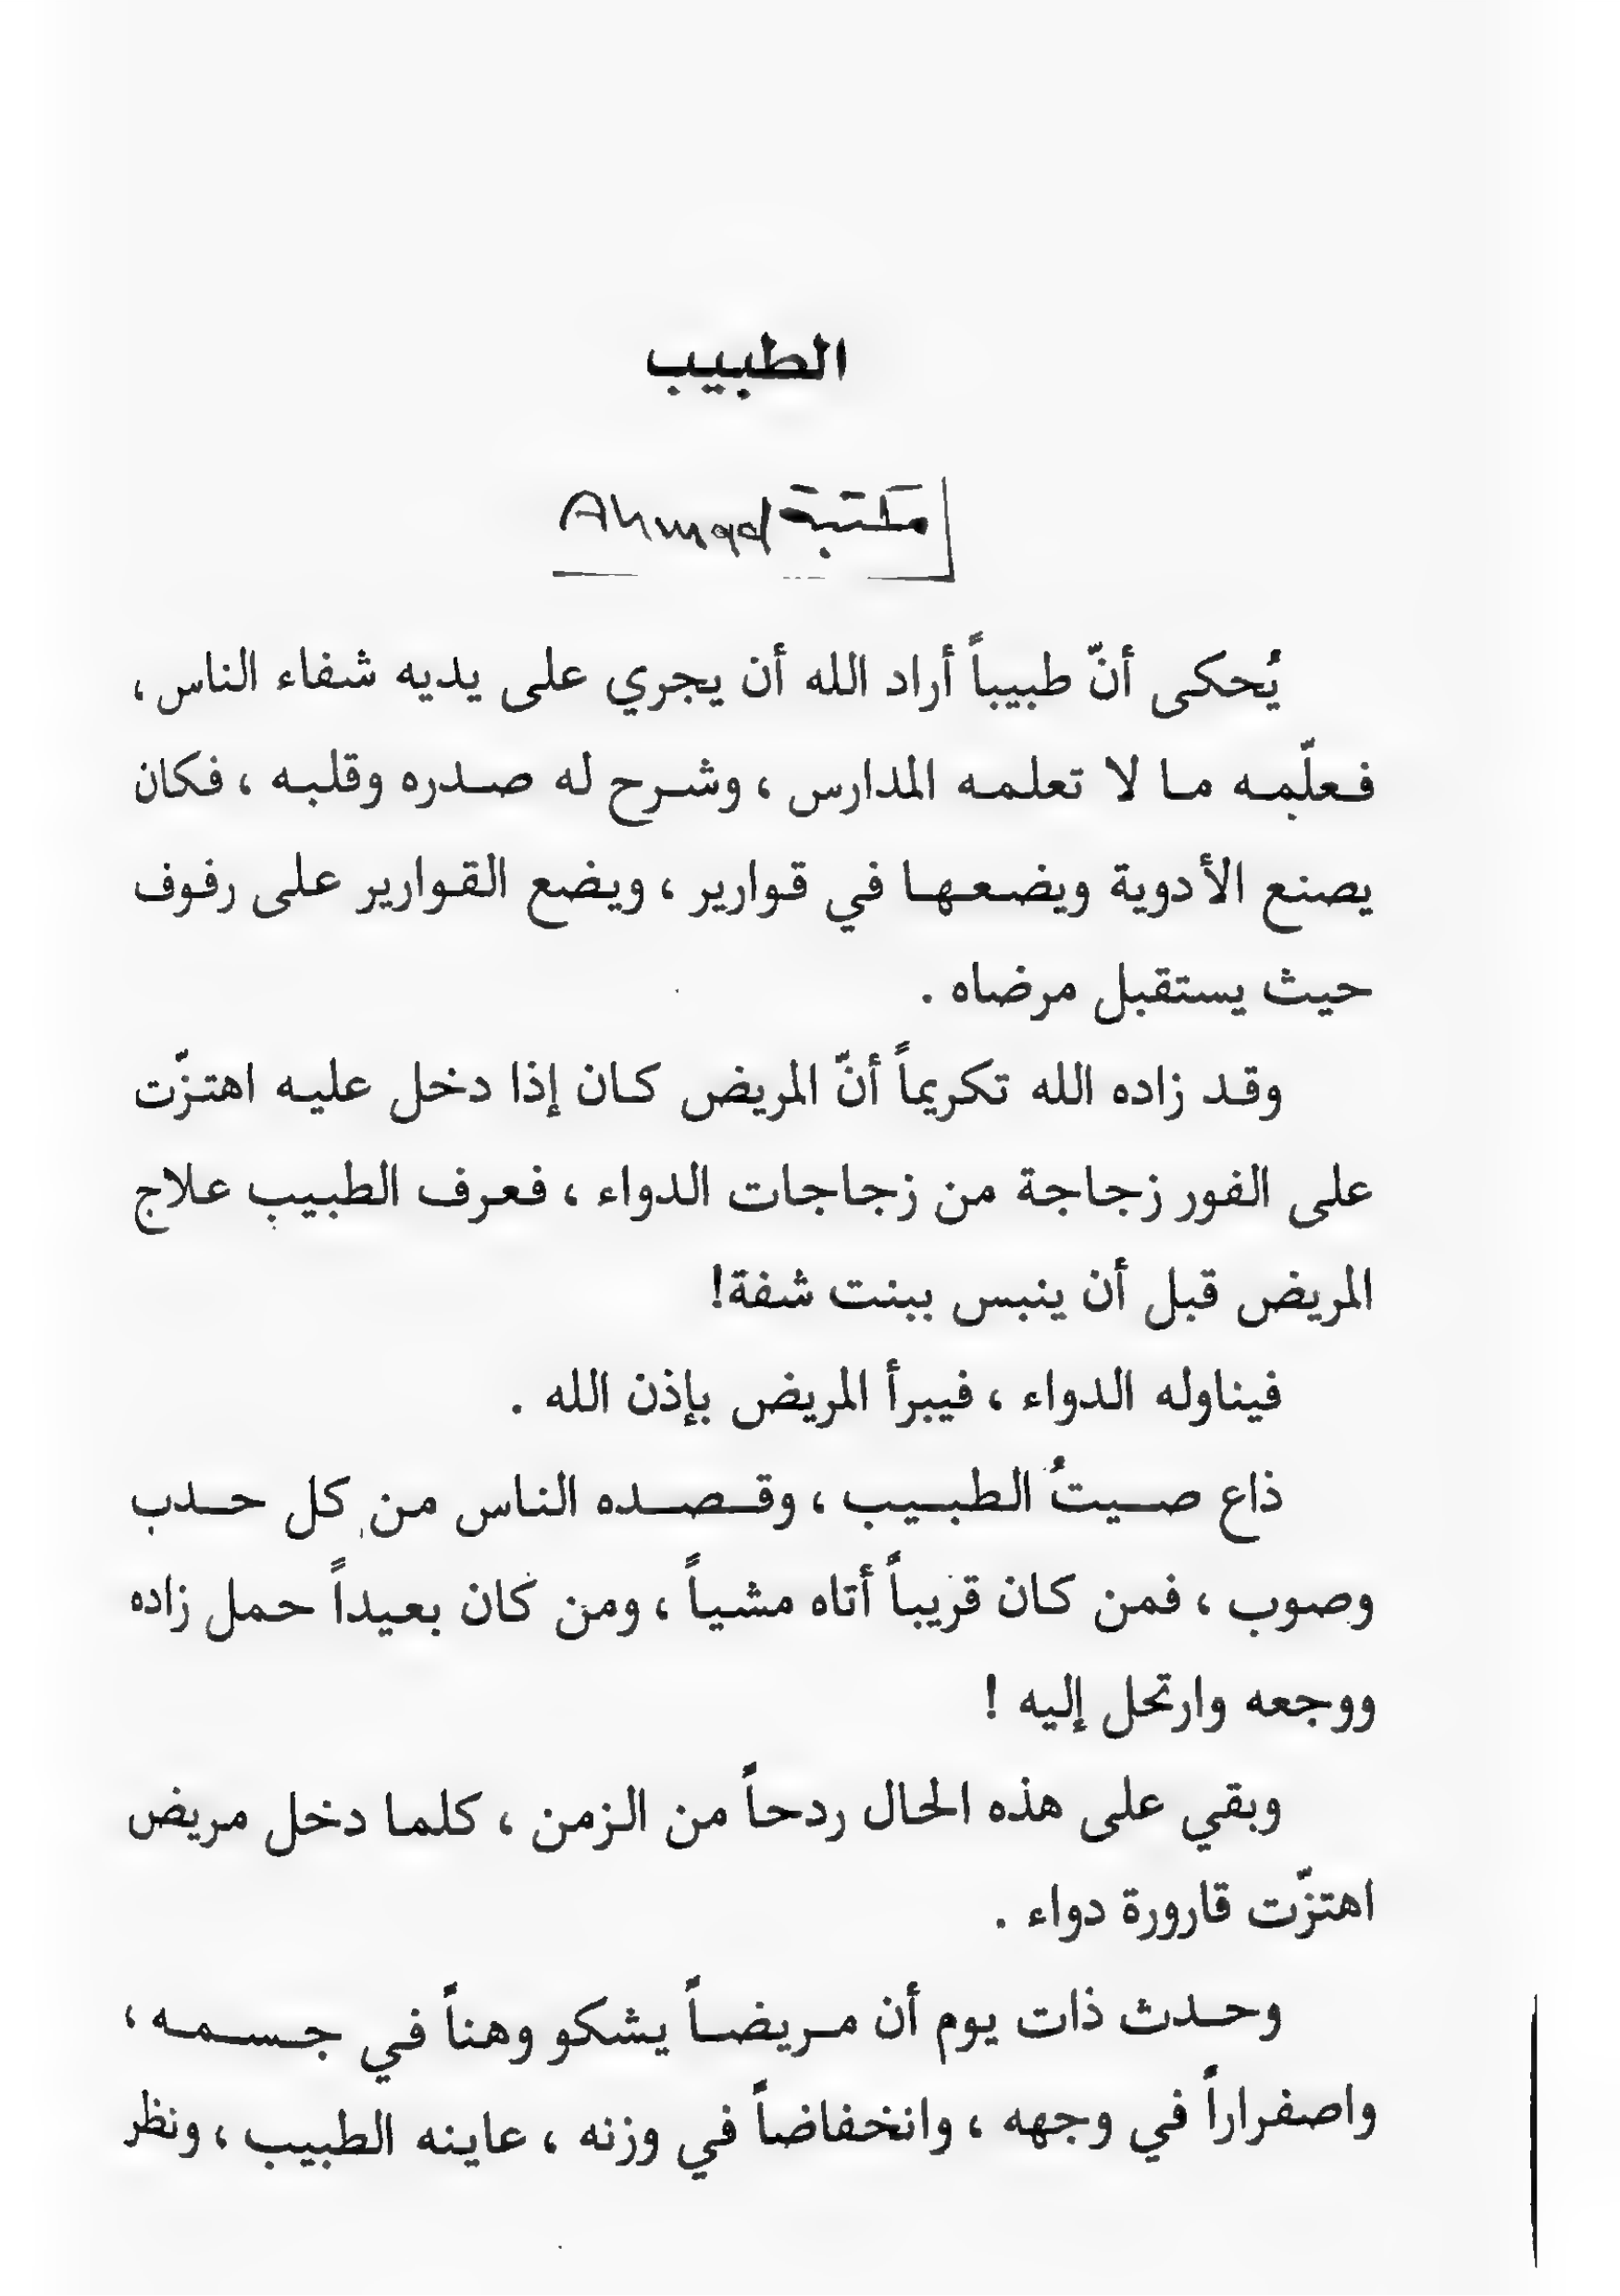 الطبيب
مكتبة Ahmad
يُحكى أنّ طبيباً أراد الله أن يجري على يديه شفاء الناس ،
فعلّمه ما لا تعلمه المدارس ، وشرح له صدره وقلبه ، فكان
يصنع الأدوية ويضعها في قوارير ، ويضع القوارير على رفوف
حيث يستقبل مرضاه .
وقد زاده الله تكريماً أنّ المريض كان إذا دخل عليه اهتزّت
على الفور زجاجة من زجاجات الدواء ، فعرف الطبيب علاج
المريض قبل أن ينبس ببنت شفة!
فيناوله الدواء ، فيبرأ المريض بإذن الله .
ذاع صيتُ الطبيب ، وقصده الناس من كل حدب
وصوب ، فمن كان قريباً أتاه مشياً ، ومن كان بعيداً حمل زاده
ووجعه وارتحل إليه !
وبقي على هذه الحال ردحاً من الزمن ، كلما دخل مريض
اهتزّت قارورة دواء .
وحدث ذات يوم أن مريضاً يشكو وهناً في جسمه ،
واصفراراً في وجهه ، وانخفاضاً في وزنه ، عاينه الطبيب ، ونظر